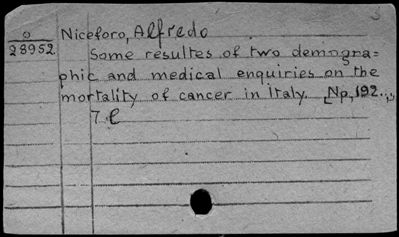 o
28952
Niceforo, Alfredo
Some resultes of two demogra=
phic and medical enquiries on the
mortality of cancer in Italy. [Np, 192..,
7 l